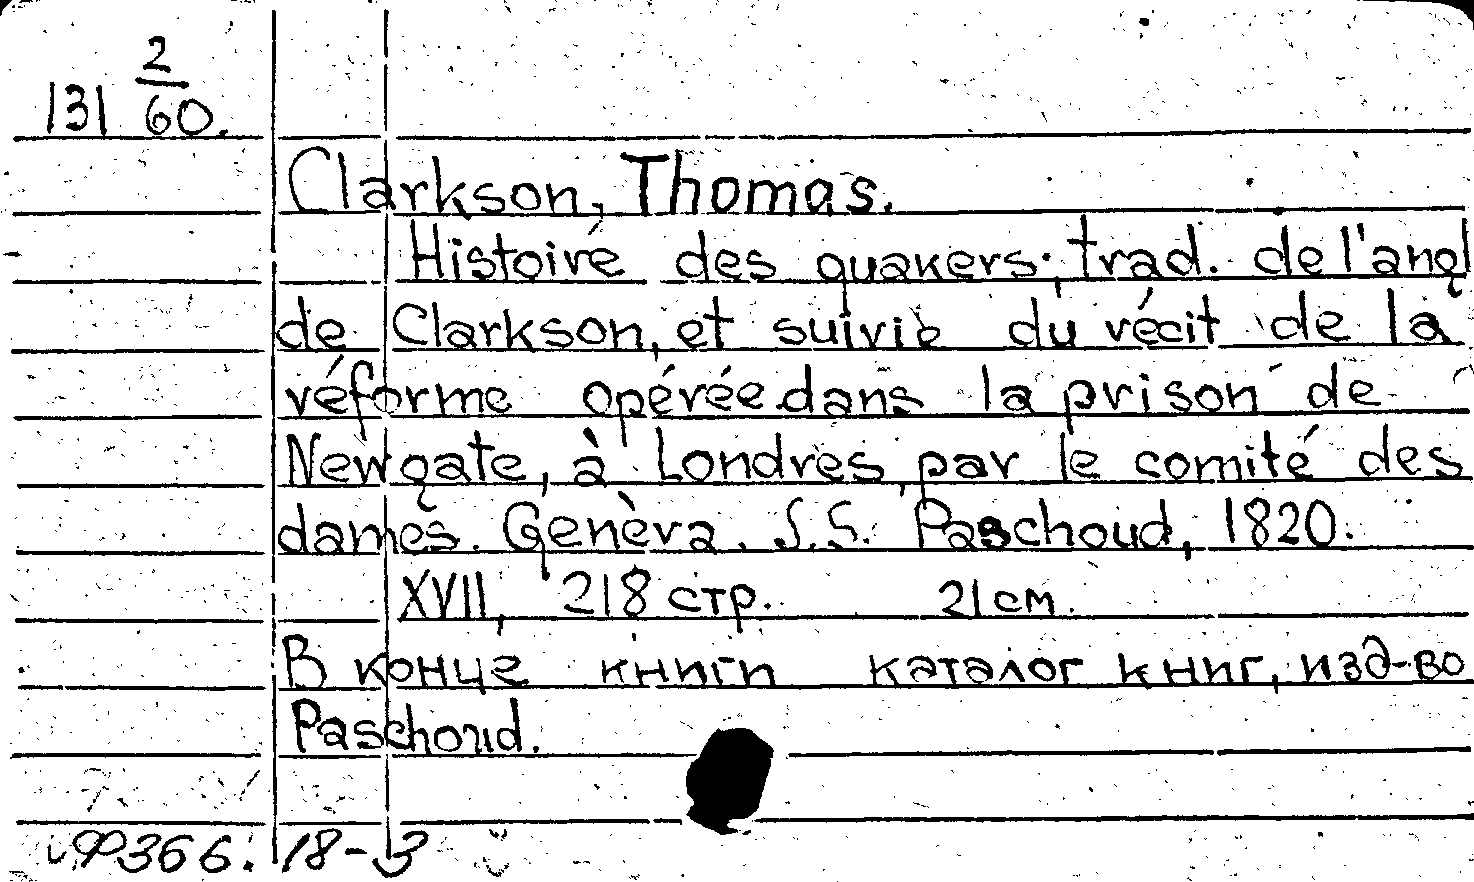 131 2/60.
Clarkson, Thomas.
Histoire des quakers; trad. de l'angl
de Clarkson, et suivie du récit de la
réforme opérée dans la prison de
Newgate, à Londres, par le comité des
dames. Genèva. J.S. Paschoud, 1820.
XVII, 218 стр. 21 см.
В конце книги каталог книг, изд-во
Paschoud.
366. 18-3